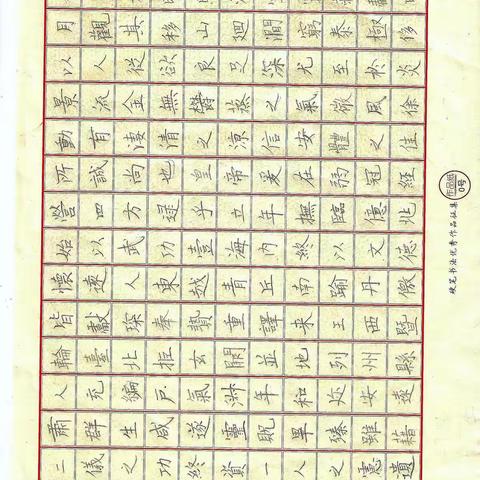 月觀其移山迴澗窮泰極侈
以人從欲良足深尤至於炎
景流金無鬱蒸之氣微風徐
動有淒清之涼信安體之佳
所誠尚也皇帝爰在弱冠經
營四方逮乎立年撫臨億兆
始以武功壹海內終以文德
懷遠人東越青丘南踰丹儌
皆獻琛奉贄重譯來王西暨
輪臺北拒玄闕並地列州縣
人充編戶氣淑年和迩安遠
肅群生咸遂靈貺畢臻雖藉
二儀之功終資一人之慮遺
硬笔书法优秀作品征集
作品纸
0号